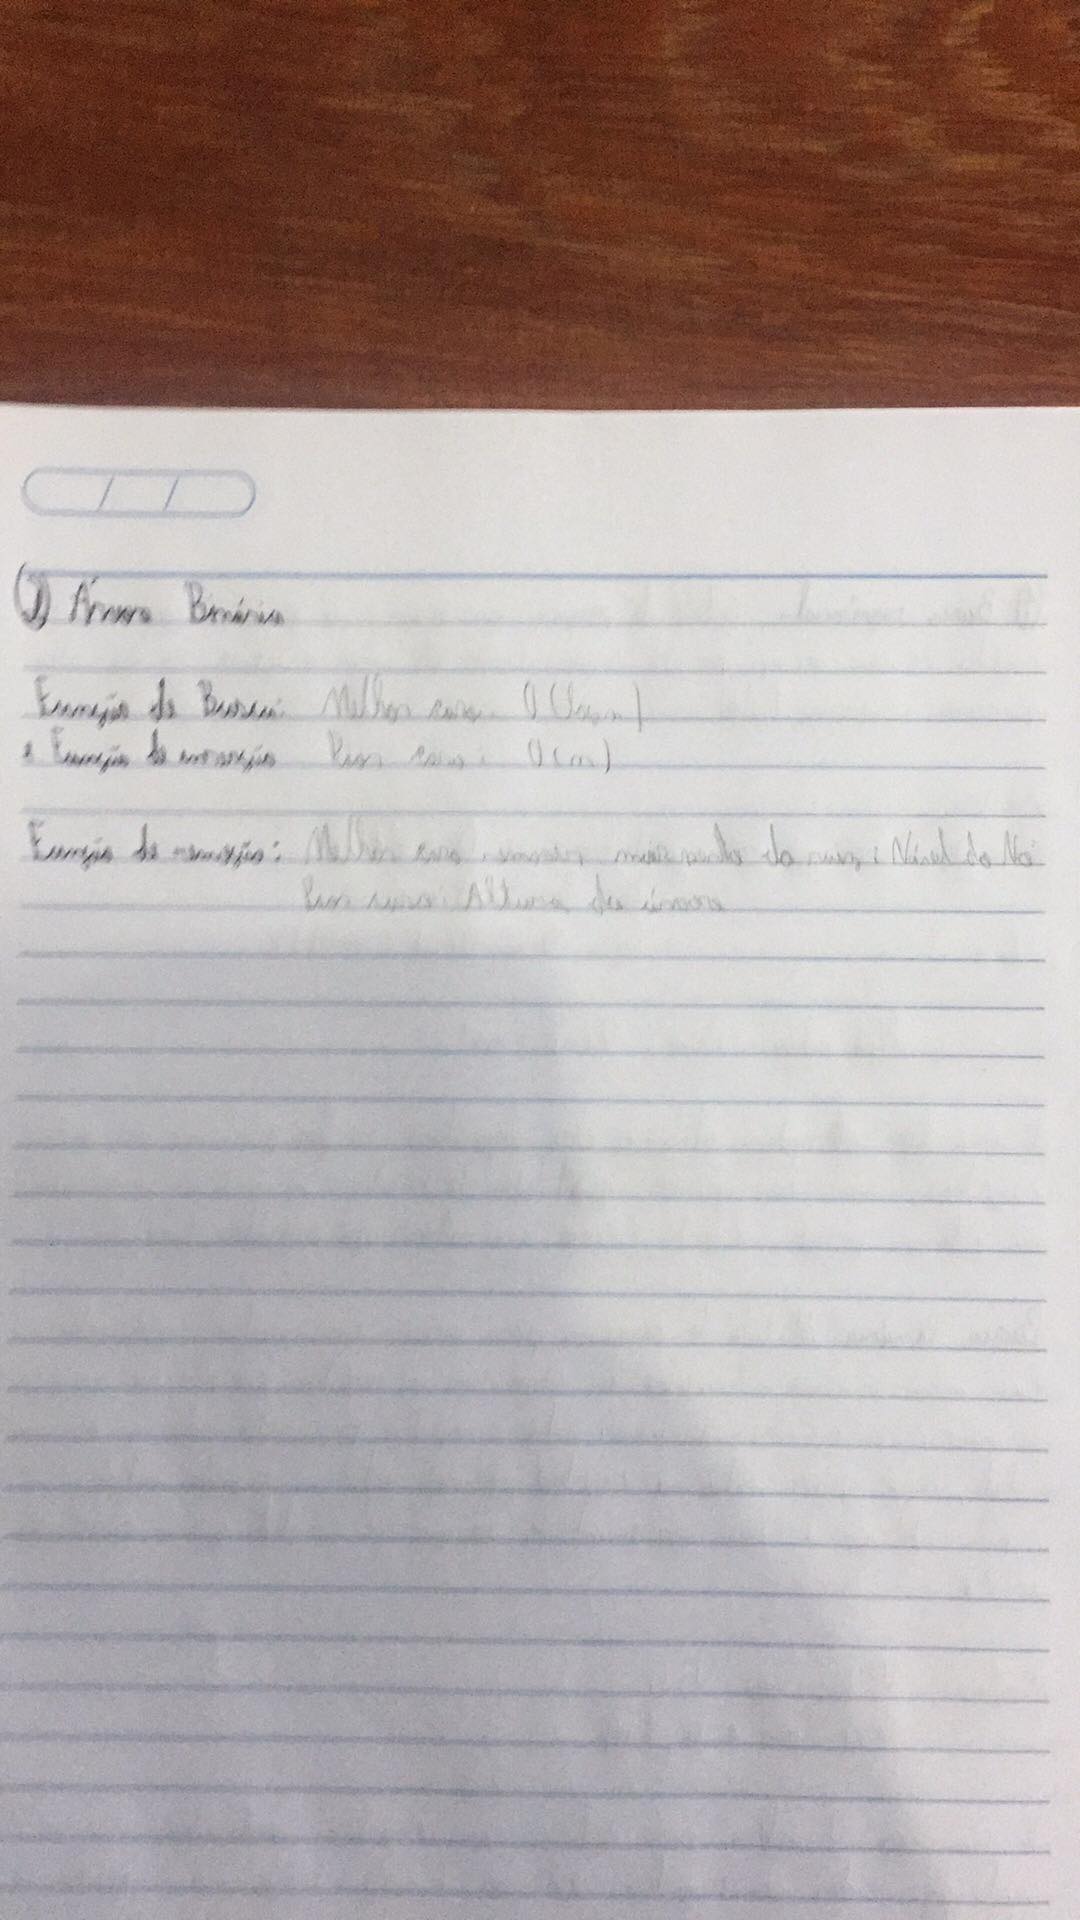 1) Árvore Binária
Função de Busca: Melhor caso: O(log n)
e Função de inserção Pior caso: O(n)
Função de remoção: Melhor caso: do : Nível do Nó
Pior caso: Altura da árvore